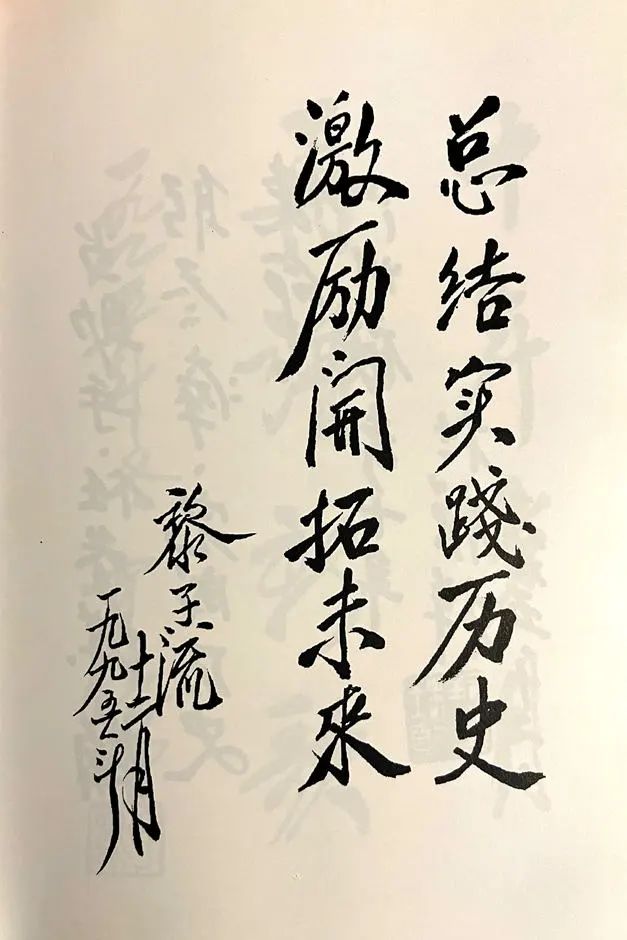 总结实践历史
激励開拓未来
黎子流
一九九五年
十二月